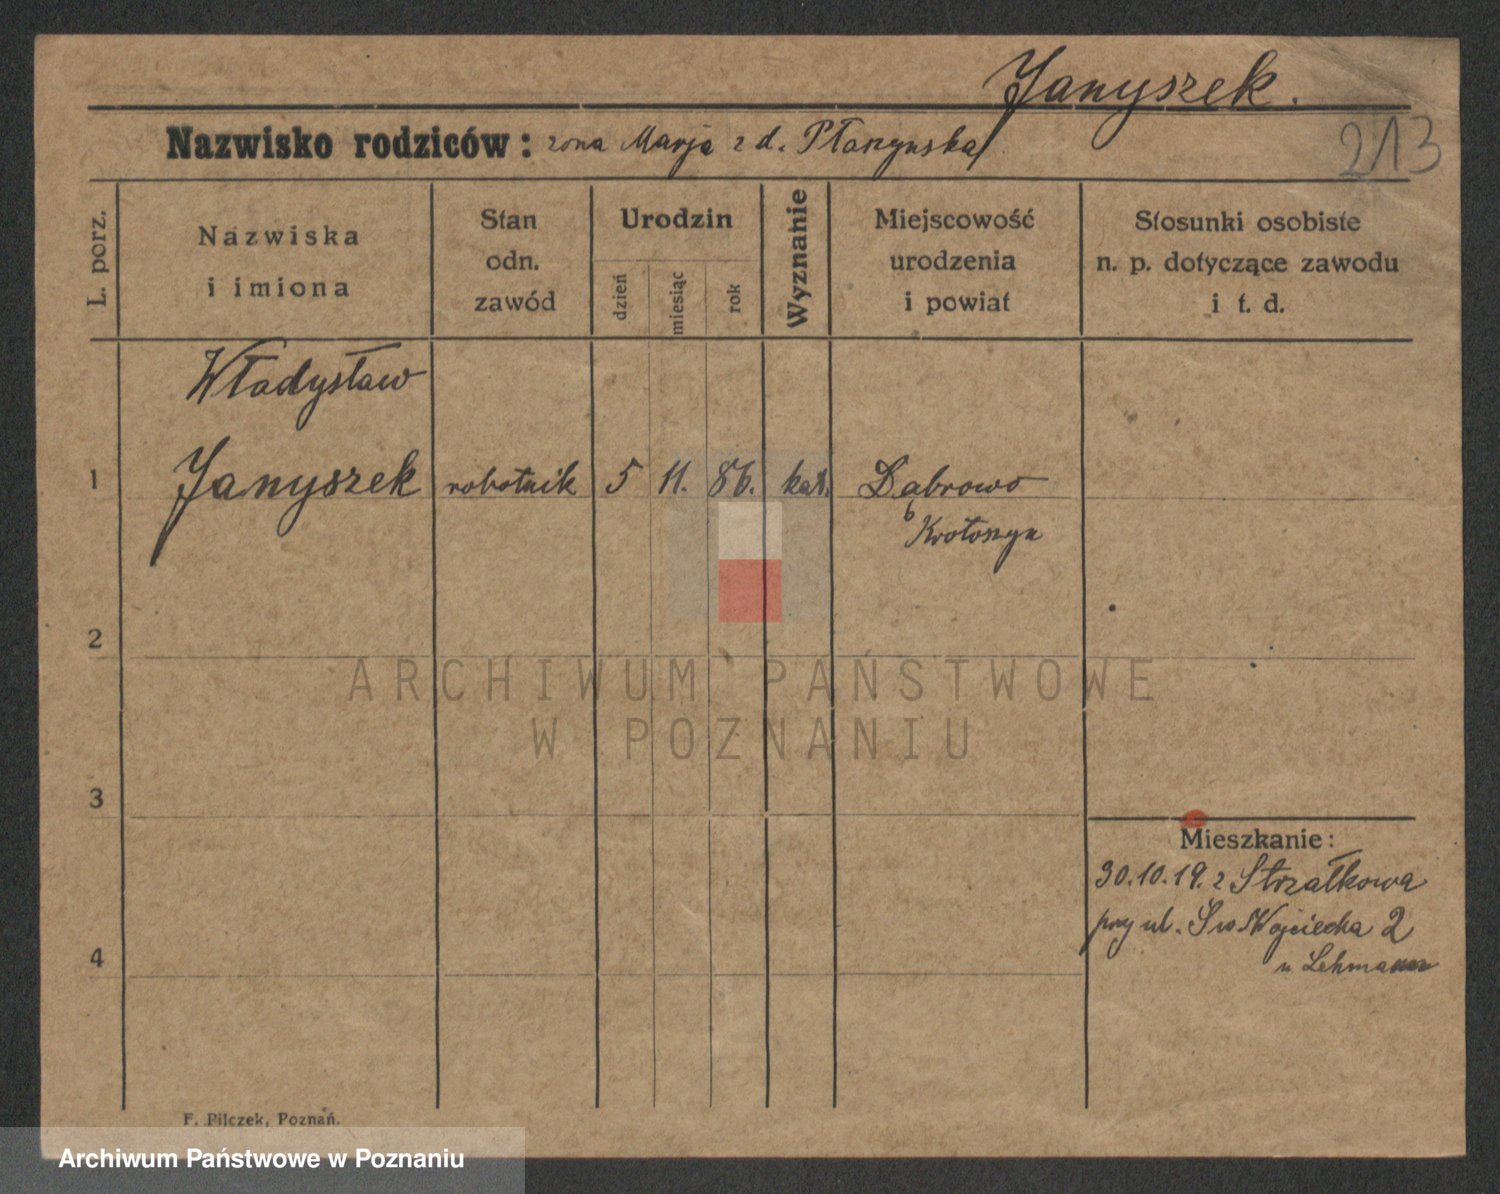 Janyszek.
213
Nazwisko rodziców: żona Marja z d. Płaszynska
L. porz.
Nazwiska
i imiona
Stan
odn.
zawód
Urodzin
dzień
miesiąc
rok
Wyznanie
Miejscowość
urodzenia
i powiat
Stosunki osobiste
n. p. dotyczące zawodu
i t. d.
Władysław
1 Janyszek robotnik 5 11. 86. kat. Dąbrowo
Krotoszyn
2
3
4
ARCHIWUM PAŃSTWOWE
W POZNANIU
Mieszkanie:
30.10.19. z Strzałkowa
przy ul. Św Wojciecha 2
u Lehmann
F. Pilczek, Poznań.
Archiwum Państwowe w Poznaniu